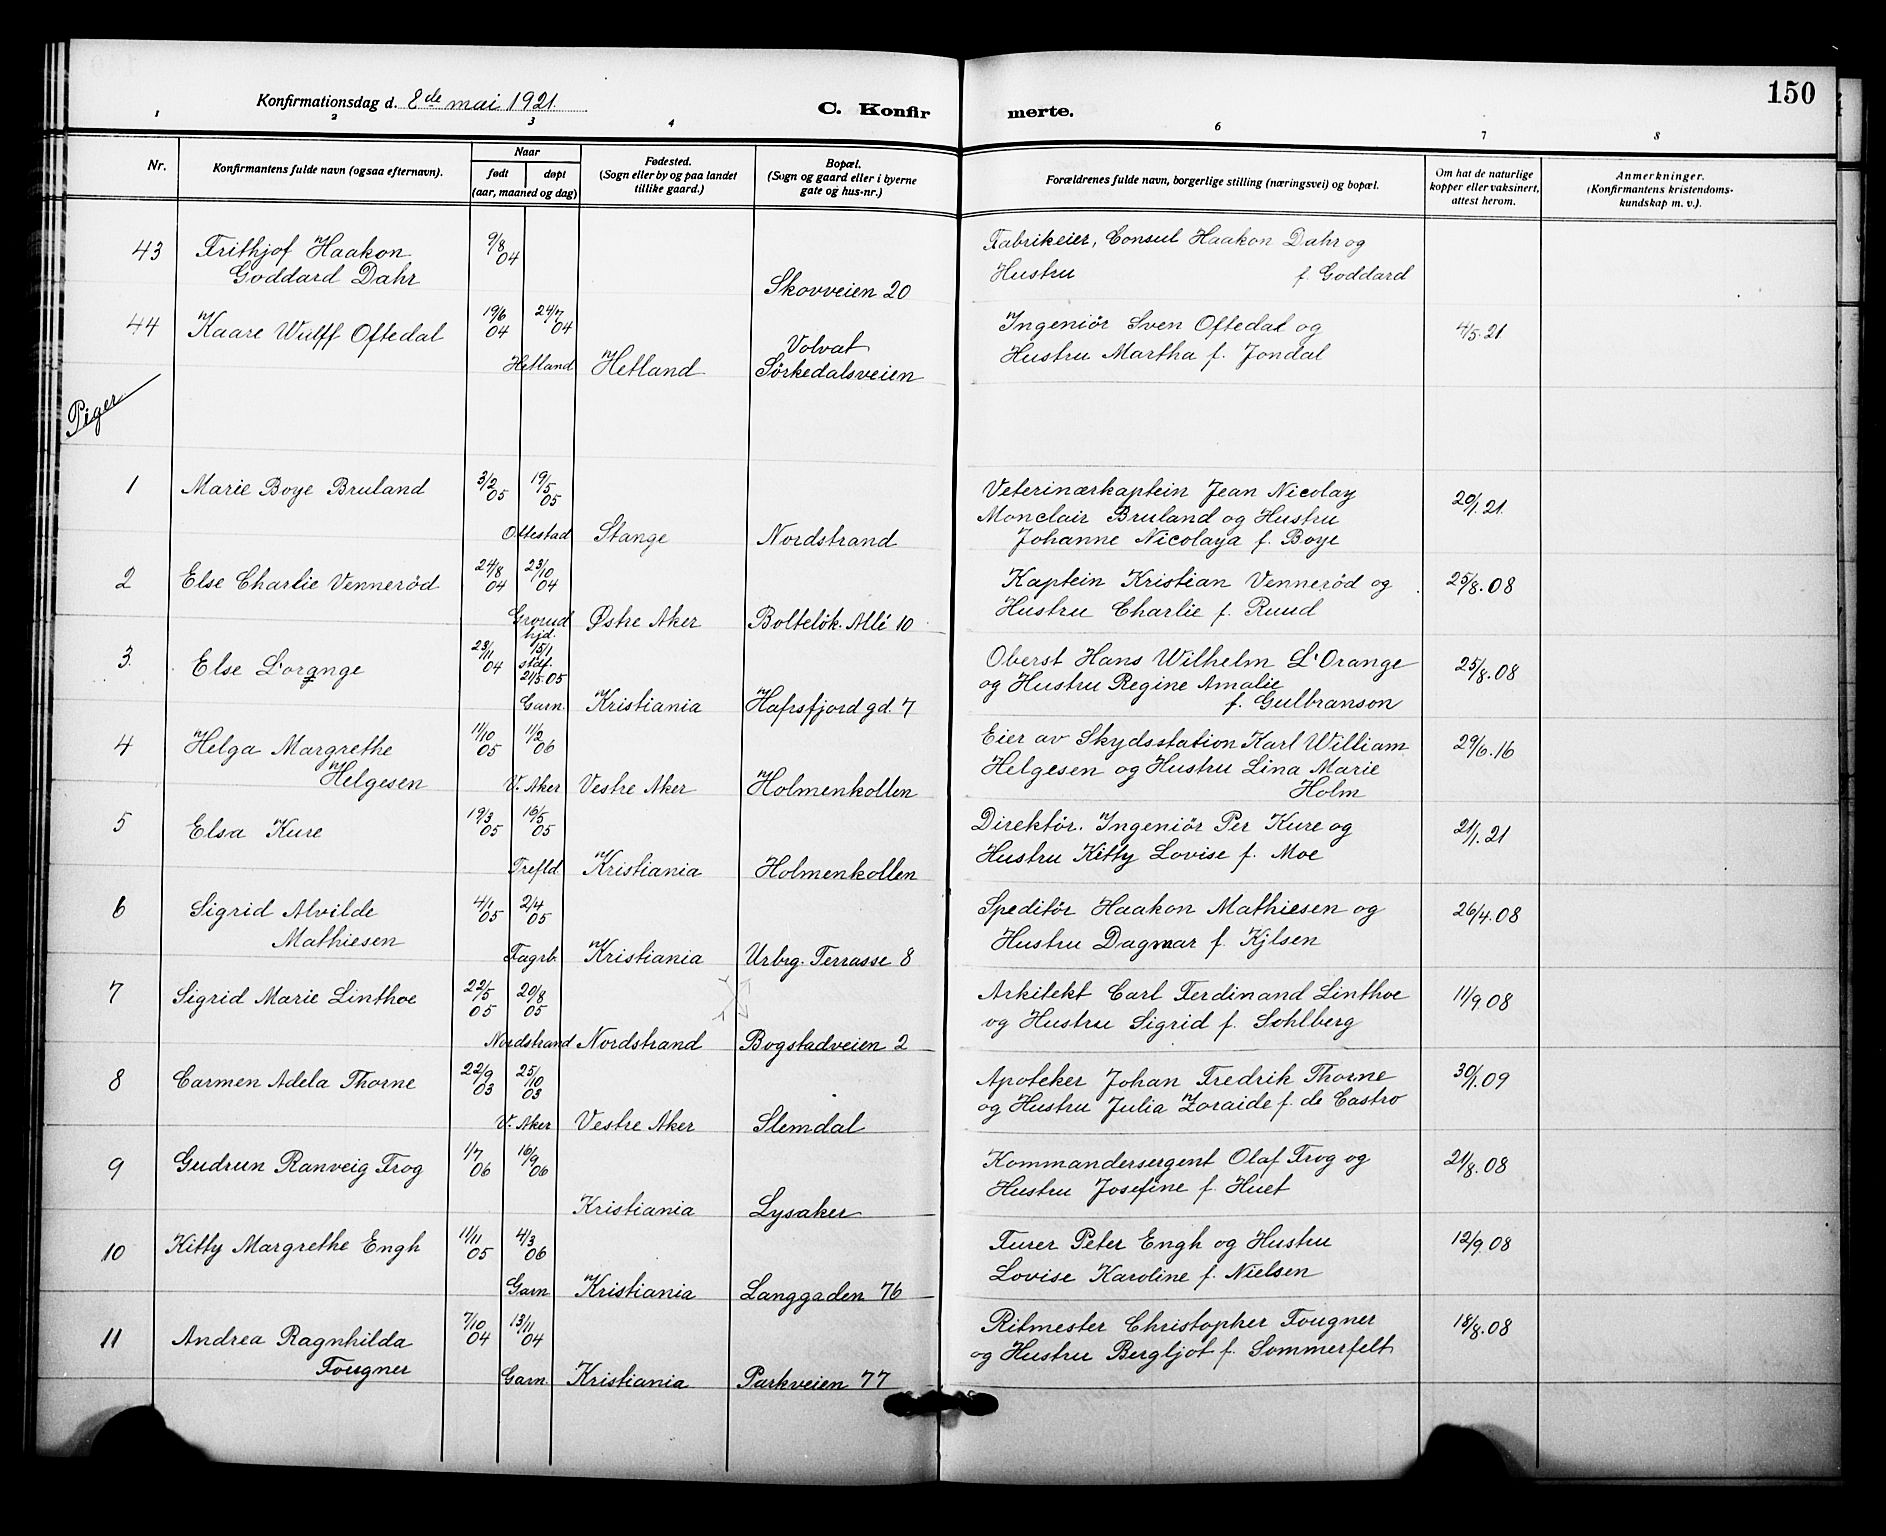 150
Konfirmationsdag d. 8de mai 1921.
C. Konfirmerte.
1 2 3 4 6 7 8
Nr.
Konfirmantens fulde navn (ogsaa efternavn).
Naar
født døpt
(aar, maaned og dag)
Fødested.
(Sogn eller by og paa landet
tillike gaard.)
Bopæl.
(Sogn og gaard eller i byerne
gate og hus-nr.)
Forældrenes fulde navn, borgerlige stilling (næringsvei) og bopæl.
Om hat de naturlige
kopper eller vaksinert,
attest herom.
Anmerkninger.
(Konfirmantens kristendoms-
kundskap m. v.).
43 Frithjof Haakon 9/8 04 Fabrikeier, Consul Haakon Dahr og
Goddard Dahr Skovveien 20 Hustru f. Goddard
44 Kaare Wulff Oftedal 19/6 04 24/7 04 Volvat Ingeniör Sven Oftedal og 4/5.21
Hetland Hetland Sörkedalsveien Hustru Martha f. Jondal
Piger
1 Marie Boye Bruland 3/2 05 19/5 05 Veterinærkaptein Jean Nicolay 20/1.21.
Monclair Bruland og Hustru
Ottestad Stange Nordstrand Johanne Nicolaya f. Boye
2 Else Charlie Venneröd 24/8 04 23/10 04 Kaptein Kristian Venneröd og 25/8.08
Grorud Østre Aker Bolteløk. Allé 10 Hustru Charlie f. Ruud
3. Else L'orange 23/11 04 hjd. 15/1 stdf. 21/5.05 Oberst Hans Wilhelm L'Orange 25/8.08
og Hustru Regine Amalie
Garn. Kristiania Hafrsfjord gd. 7 f. Gulbranson
4 Helga Margrethe 11/10 05 11/2 06 Eier av Skydsstation Karl William 29/6.16
Helgesen V. Aker Vestre Aker Holmenkollen Helgesen og Hustru Lina Marie
Holm
5 Elsa Kure 19/3 05 16/5 05 Direktör. Ingeniör Per Kure og 21/1.21
Trefld. Kristiania Holmenkollen Hustru Kitty Lovise f. Moe
6 Sigrid Alvilde 4/1 05 2/4 05 Speditör Haakon Mathiesen og 26/4.08
Mathiesen Fagrb. Kristiania Urbrg. Terrasse 8 Hustru Dagmar f. Kjlsen
7 Sigrid Marie Linthoe 22/5 05 20/8 05 Arkitekt Carl Ferdinand Linthoe 11/9.08
Nordstrand Nordstrand Bogstadveien 2 og Hustru Sigrid f. Sohlberg
8 Carmen Adela Thorne 22/9 03 25/10 03 Apoteker Johan Fredrik Thorne 30/1.09
V. Aker Vestre Aker Slemdal og Hustru Julia Zoraide f. de Castro
9 Gudrun Ranveig Frog 1/7 06 16/9 06 Kommandersergent Olaf Frog og 21/8.08
Kristiania Lysaker Hustru Josefine f. Huet
10 Kitty Margrethe Engh 11/11 05 4/3 06 Furer Peter Engh og Hustru 12/9.08
Garn. Kristiania Langgaden 76 Lovise Karoline f. Nielsen
11 Andrea Ragnhilda 7/10 04 13/11 04 Ritmester Christopher Fougner 18/8.08
Fougner Garn. Kristiania Parkveien 77 og Hustru Bergljot f. Sommerfelt